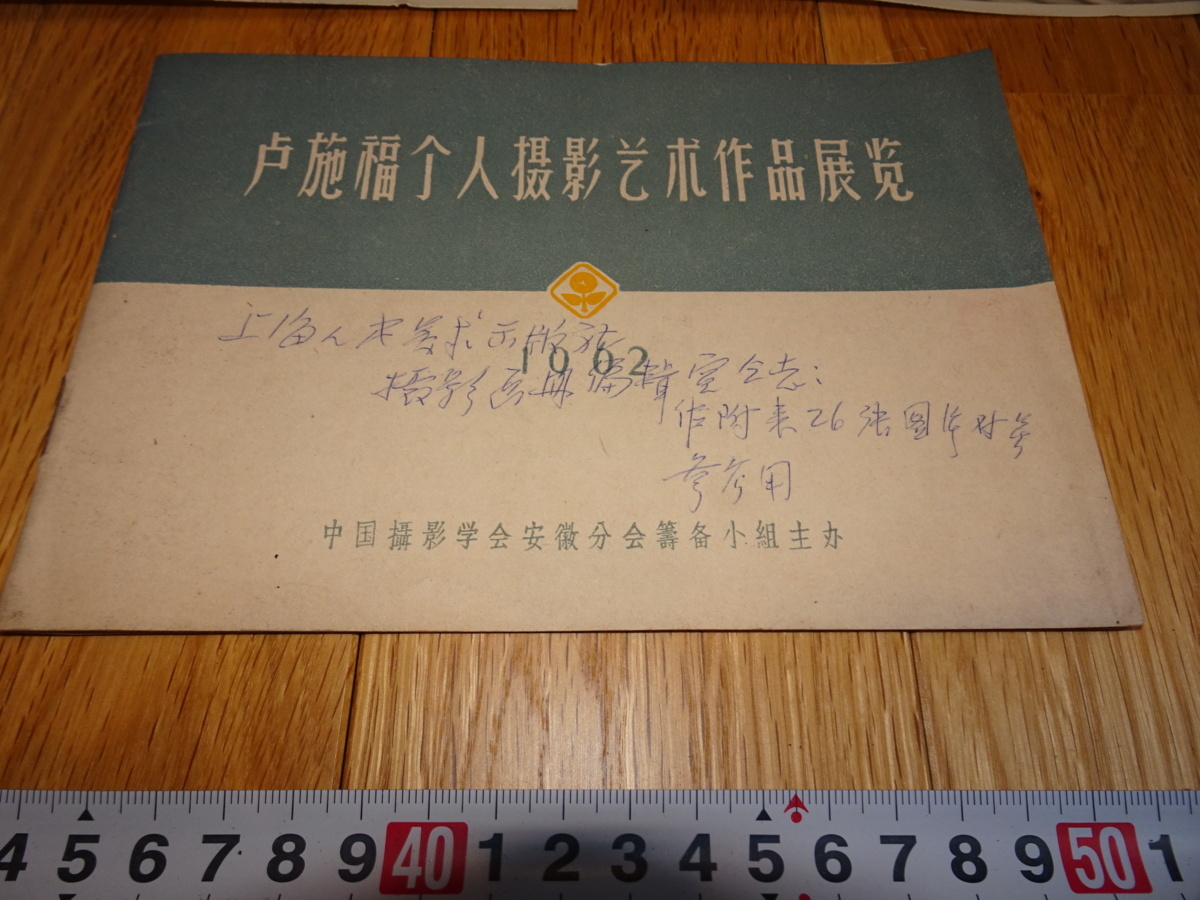 卢施福个人摄影艺术作品展览
上海人民美术出版社
1962
摄影画册编辑室仝志:
作附来26张图片时等
参考用
中国攝影学会安徽分会籌备小組主办
4 5 6 7 8 9 40 1 2 3 4 5 6 7 8 9 50 1